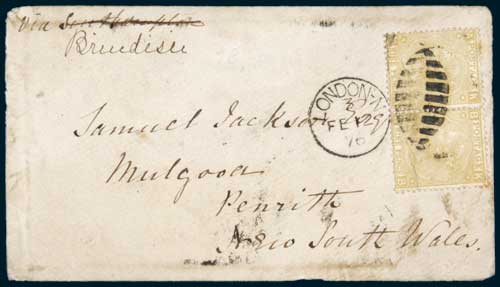 via Southampton
Brindisi
LONDON·N
3
FE 29
76
Samuel Jackson
Mulgoa
Penrith
New South Wales.